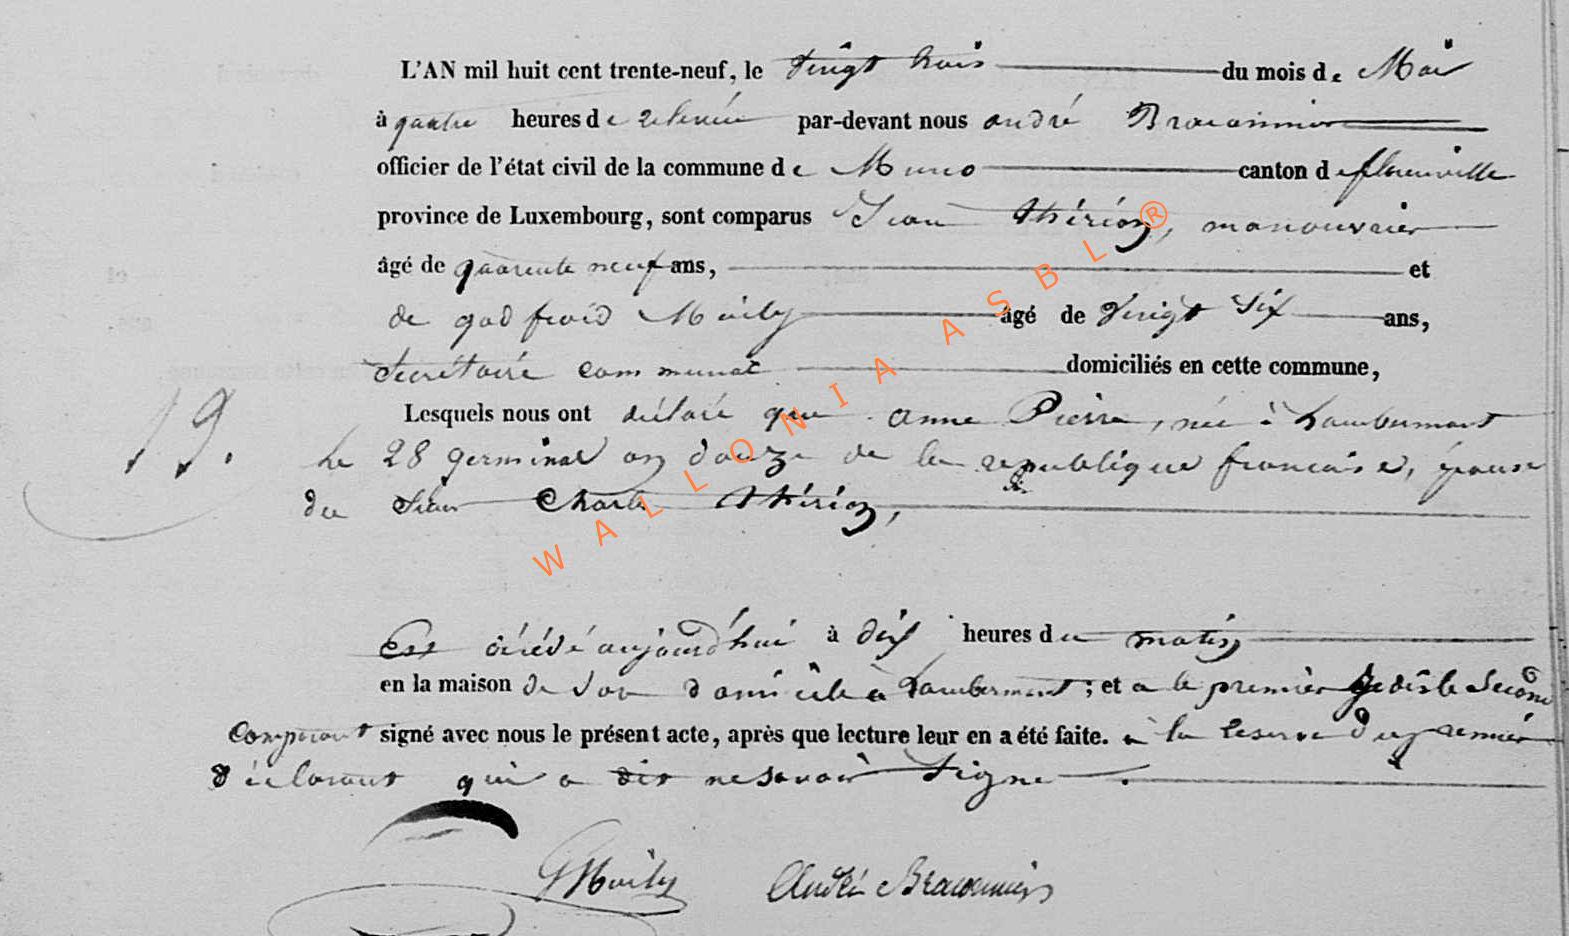 L'AN mil huit cent trente-neuf, le Vingt trois du mois de Mai
à quatre heures de relevée par-devant nous andré Braconnier
officier de l'état civil de la commune de Muno canton de florenville
province de Luxembourg, sont comparus Jean Thérion, manouvrier
âgé de quarente neuf ans, et
de godfroid Maily âgé de Vingt Six ans,
Secrétaire communal domiciliés en cette commune,
Lesquels nous ont déclaré que anne Pierre, née à Lambermont
19.
le 28 germinal an douze de la republique francaise, épouse
du Jean Charle Thérion,
Est décédé aujourd'hui à dix heures du matin
en la maison de son domicile à Lambermont ; et a le premier le Second
comparant signé avec nous le présent acte, après que lecture leur en a été faite. à la reserve du premier
déclarant qui a dit ne savoir Signe.
GMaily André Braconnier
WALLONIA ASBL ®